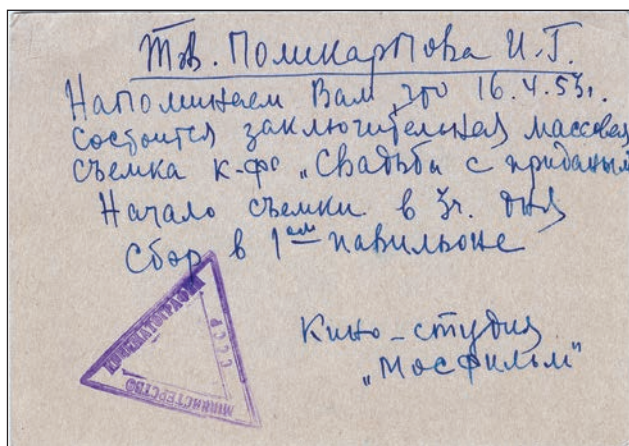 Тов. Поликарпова И.Г.
Напоминаем Вам, что 16.4.53г.
состоится заключительная массовая
съемка к-ф „Свадьба с приданым
Начало съемки в 3ч. дня
Сбор в 1ом павильоне
Кино-студия
„Мосфильм"
МИНИСТЕРСТВО
КИНЕМАТОГРАФИИ
СССР